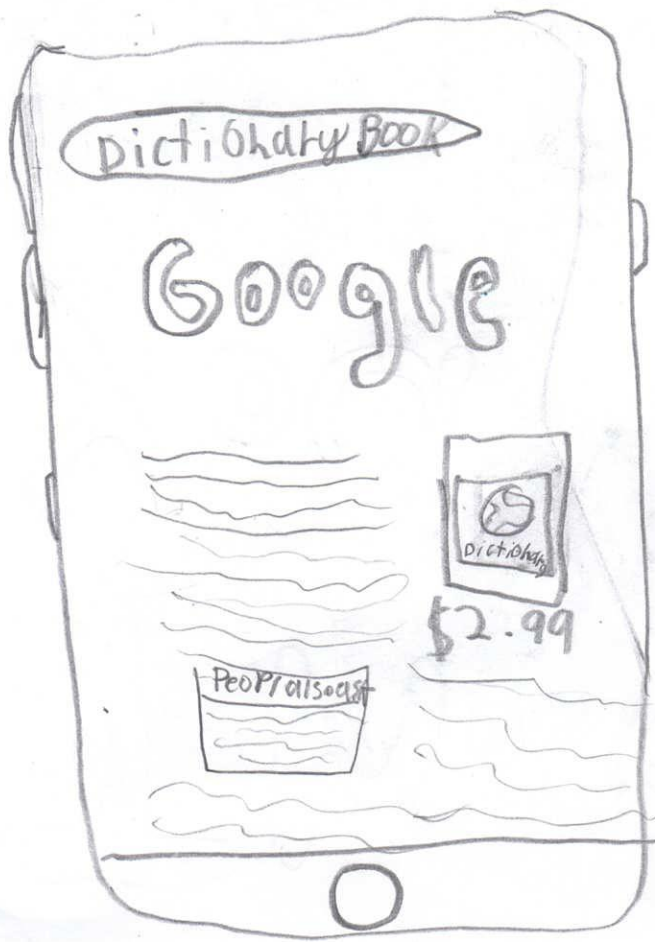 Dictionary Book
Google
Dictionary
$2.99
Peopl also ast